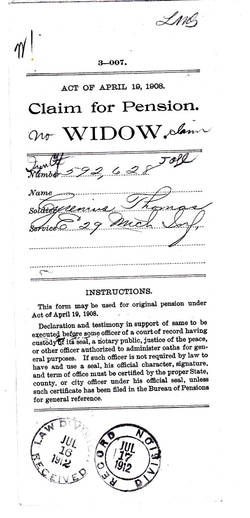 3—007.
ACT OF APRIL 19, 1908.
Claim for Pension.
No WIDOW. claim
Number 592,628
Name
Soldier Thomas
Service E 29 Mich Inf.
INSTRUCTIONS.
This form may be used for original pension under
Act of April 19, 1908.
Declaration and testimony in support of same to be
executed before some officer of a court of record having
custody of its seal, a notary public, justice of the peace,
or other officer authorized to administer oaths for gen-
eral purposes. If such officer is not required by law to
have and use a seal, his official character, signature,
and term of office must be certified by the proper State,
county, or city officer under his official seal, unless
such certificate has been filed in the Bureau of Pensions
for general reference.
LAW DIVISION
JUL
16
1912
RECEIVED
RECORD DIVISION
JUL
16
1912